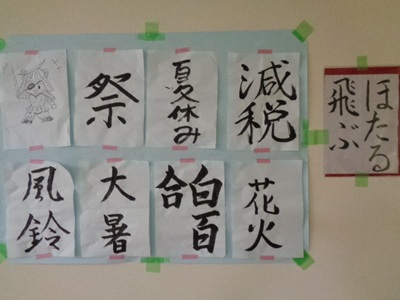 ほたる
飛ぶ
減税
夏休み
祭
花火
白百
合
大暑
風鈴